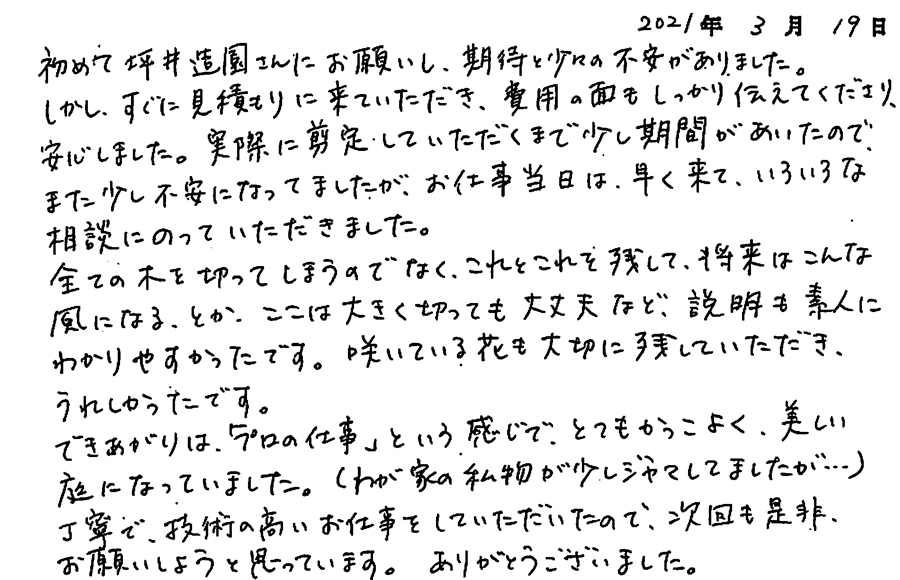 2021年 3月 19日
初めて坪井造園さんにお願いし、期待と少々の不安がありました。
しかし、すぐに見積もりに来ていただき、費用の面もしっかり伝えてくださり、
安心しました。実際に剪定していただくまで少し期間があいたので、
また少し不安になってましたが、お仕事当日は、早く来て、いろいろな
相談にのっていただきました。
全ての木を切ってしまうのでなく、これとこれを残して、将来はこんな
風になる、とか、ここは大きく切っても大丈夫など、説明も素人に
わかりやすかったです。咲いている花も大切に残していただき、
うれしかったです。
できあがりは、「プロの仕事」という感じで、とてもかっこよく、美しい
庭になっていました。(わが家の私物が少しジャマしてましたが…)
丁寧で、技術の高いお仕事をしていただいたので、次回も是非、
お願いしようと思っています。 ありがとうございました。